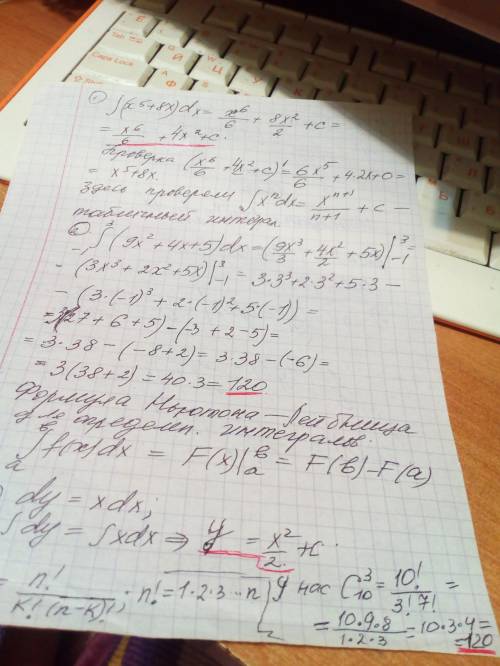 ① ∫(x⁵+8x)dx = x⁶/6 + 8x²/2 + c =
= x⁶/6 + 4x² + c.
Проверка (x⁶/6 + 4x² + c)' = 6x⁵/6 + 4·2x + 0 =
= x⁵ + 8x.
Здесь проверяем ∫xⁿdx = xⁿ⁺¹/(n+1) + c —
табличный интеграл.
∫₋₁³ (9x² + 4x + 5)dx = (9x³/3 + 4x²/2 + 5x)|₋₁³ =
- (3x³ + 2x² + 5x)|₋₁³ = 3·3³ + 2·3² + 5·3 —
- (3·(-1)³ + 2·(-1)² + 5·(-1)) =
= 3(27 + 6 + 5) - (-3 + 2 - 5) =
= 3·38 - (-8 + 2) = 3·38 - (-6) =
= 3(38 + 2) = 40·3 = 120
Формула Ньютона — Лейбница
для определен. интегралов.
∫ₐᵇ f(x)dx = F(x)|ₐᵇ = F(в) - F(a)
dy = xdx;
∫dy = ∫xdx ⇒ y = x²/2 + c.
= n!/(k!(n-k)!) · n! = 1·2·3...n
У нас C₁₀³ = 10!/(3!7!) =
= 10·9·8/(1·2·3) = 10·3·4 =
= 120
Tab
Caps Lock